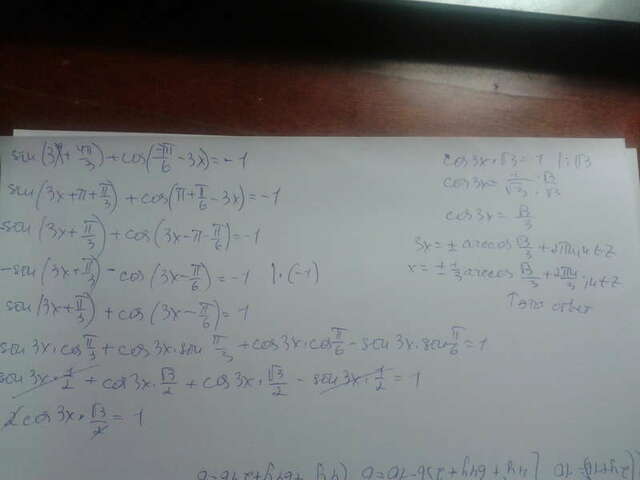 sin(3x+4π/3)+cos(7π/6-3x)=-1
sin(3x+π+π/3)+cos(π+π/6-3x)=-1
sin(3x+π/3)+cos(3x-π-π/6)=-1
-sin(3x+π/3)-cos(3x-π/6)=-1 |·(-1)
sin(3x+π/3)+cos(3x-π/6)=1
sin3x·cosπ/3+cos3x·sinπ/3+cos3x·cosπ/6-sin3x·sinπ/6=1
sin3x·1/2+cos3x·√3/2+cos3x·√3/2-sin3x·1/2=1
2cos3x·√3/2=1
cos3x·√3=1 |:√3
cos3x=1/√3·√3/√3
cos3x=√3/3
3x=±arccos√3/3+2πn, n∈Z
x=±1/3arccos√3/3+2πn/3, n∈Z
↑это ответ